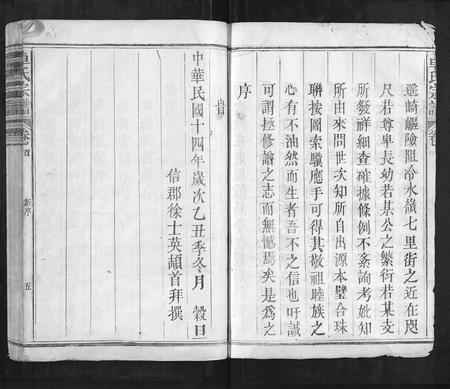 遙崎嶇險阻冷水嶺七里街之近在咫
尺若尊卑長幼若某公之繁衍若某支
所發祥細查確據條例不紊詢考妣知
所由來問世次知所自出源本璧合珠
聯按圖索驥應手可得其敬祖睦族之
心有不油然而生者吾不之信也吁誠
可謂挃修譜之志而無憾焉矣是爲之
序
旹
中華民國十四年歲次乙丑季冬月 穀旦
信郡徐士英頡首拜撰
車氏宗譜
卷首
新序
五